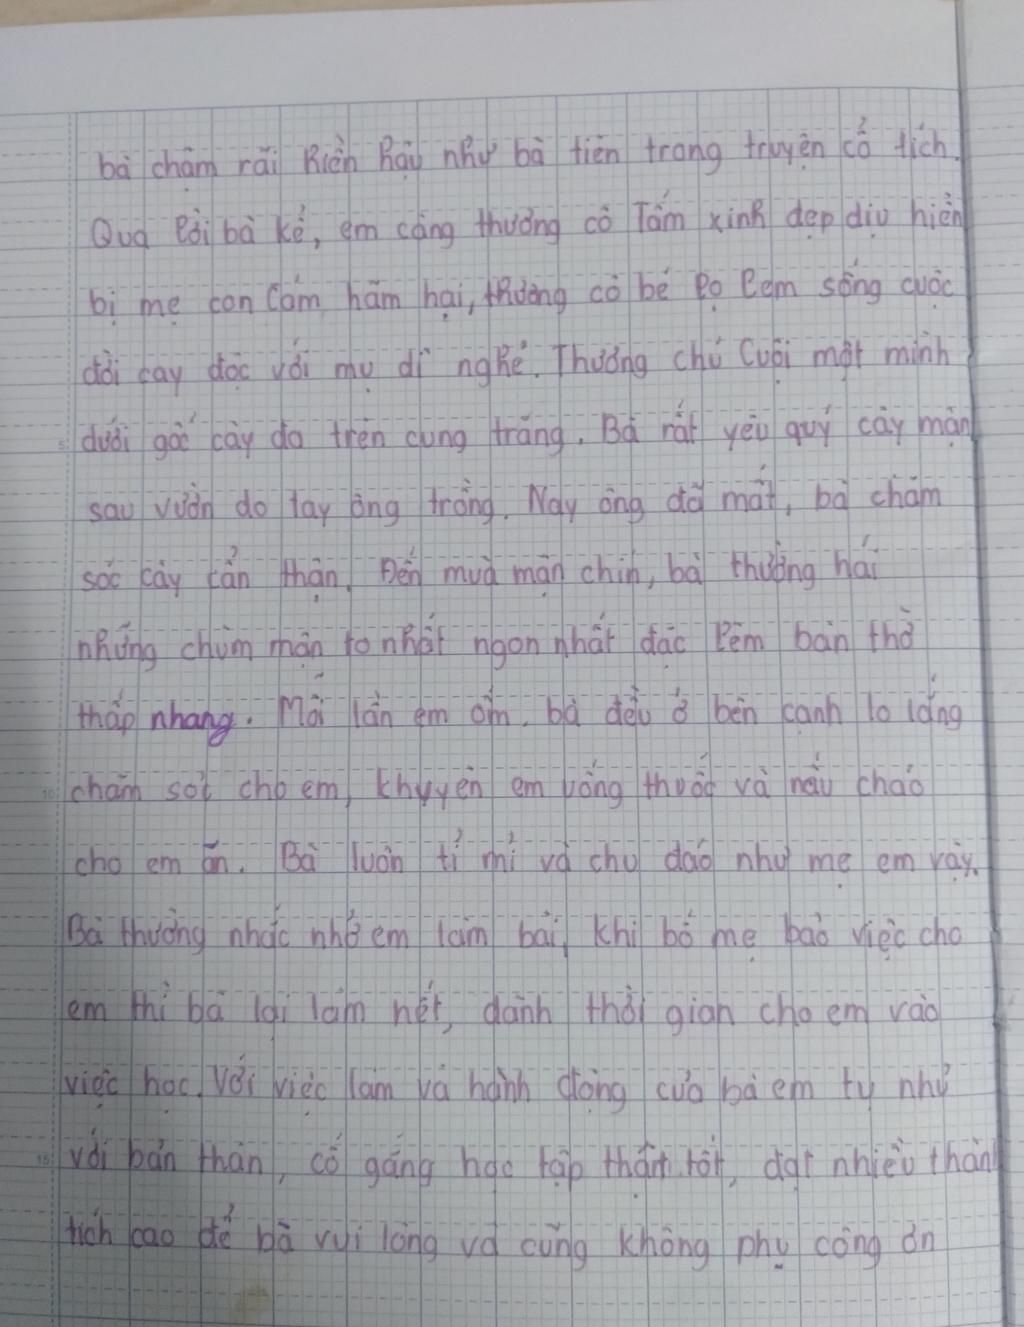 bà chậm rãi hiền hậu như bà tiên trong truyện cổ tích.
Qua lời bà kể, em càng thương cô Tấm xinh đẹp dịu hiền
bị mẹ con Cám hãm hại, thương cô bé lọ lem sống cuộc
đời cay độc với mụ dì ghẻ. Thương chú Cuội một mình
dưới gốc cây đa trên cung trăng. Bà rất yêu quý cây mận
sau vườn do tay ông trồng. Nay ông đã mất, bà chăm
sóc cây cẩn thận. Đến mùa mận chín, bà thường hái
những chùm mận to nhất ngon nhất đặc lêm bàn thờ
thắp nhang. Mỗi lần em ốm, bà đều ở bên cạnh lo lắng
chăm sót cho em, khuyên em uống thuốc và nấu cháo
cho em ăn. Bà luôn tỉ mỉ và chu đáo như mẹ em vậy.
Bà thường nhắc nhở em làm bài, khi bố mẹ bảo việc cho
em thì bà lại làm hết, dành thời gian cho em vào
việc học. Với việc làm và hành động của bà em tự nhủ
với bản thân, cố gắng học tập thật tốt, đạt nhiều thành
tích cao để bà vui lòng và cũng không phụ công ơn